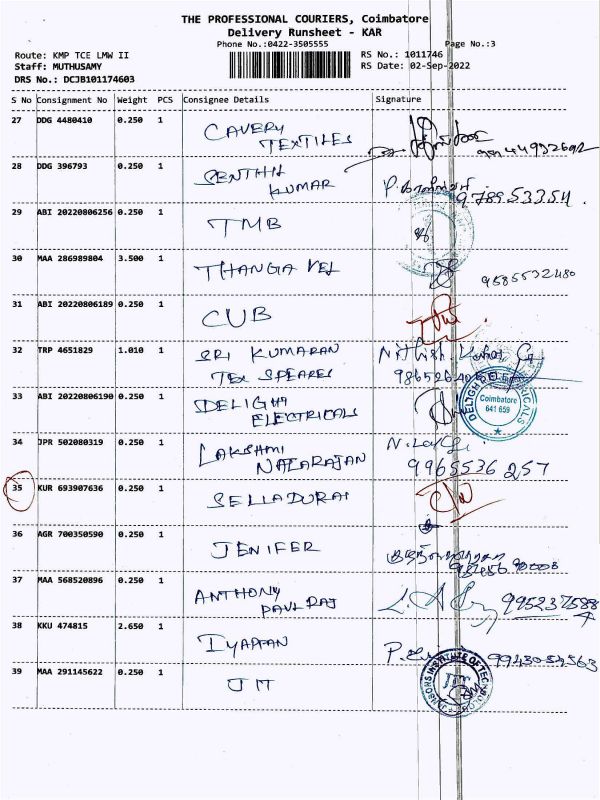 THE PROFESSIONAL COURIERS, Coimbatore
Delivery Runsheet - KAR
Phone No.:0422-3505555
Page No.:3
Route: KMP TCE LMW II
RS No.: 1011746
Staff: MUTHUSAMY
RS Date: 02-Sep-2022
DRS No.: DCJB101174603
S No Consignment No Weight PCS Consignee Details Signature
27 DDG 4480410 0.250 1 CAVERY
TEXTILES
28 DDG 396793 0.250 1 SENTHIL
KUMAR
29 ABI 20220806256 0.250 1 TMB
30 MAA 286989804 3.500 1 THANGA VEL 9585532480
31 ABI 20220806189 0.250 1 CUB
32 TRP 4651829 1.010 1 SRI KUMARAN
TEX SPEARES
33 ABI 20220806190 0.250 1 DELIGHT
ELECTRICALS
Coimbatore
641 659
34 JPR 502080319 0.250 1 LAKSHMI
NATARAJAN 9965536257
35 KUR 693907636 0.250 1 SELLADURAI
36 AGR 700350590 0.250 1 JENIFER
37 MAA 568520896 0.250 1 ANTHONY
PAUL RAJ 995237588
38 KKU 474815 2.650 1 IYAPPAN 9943054563
39 MAA 291145622 0.250 1 JIT